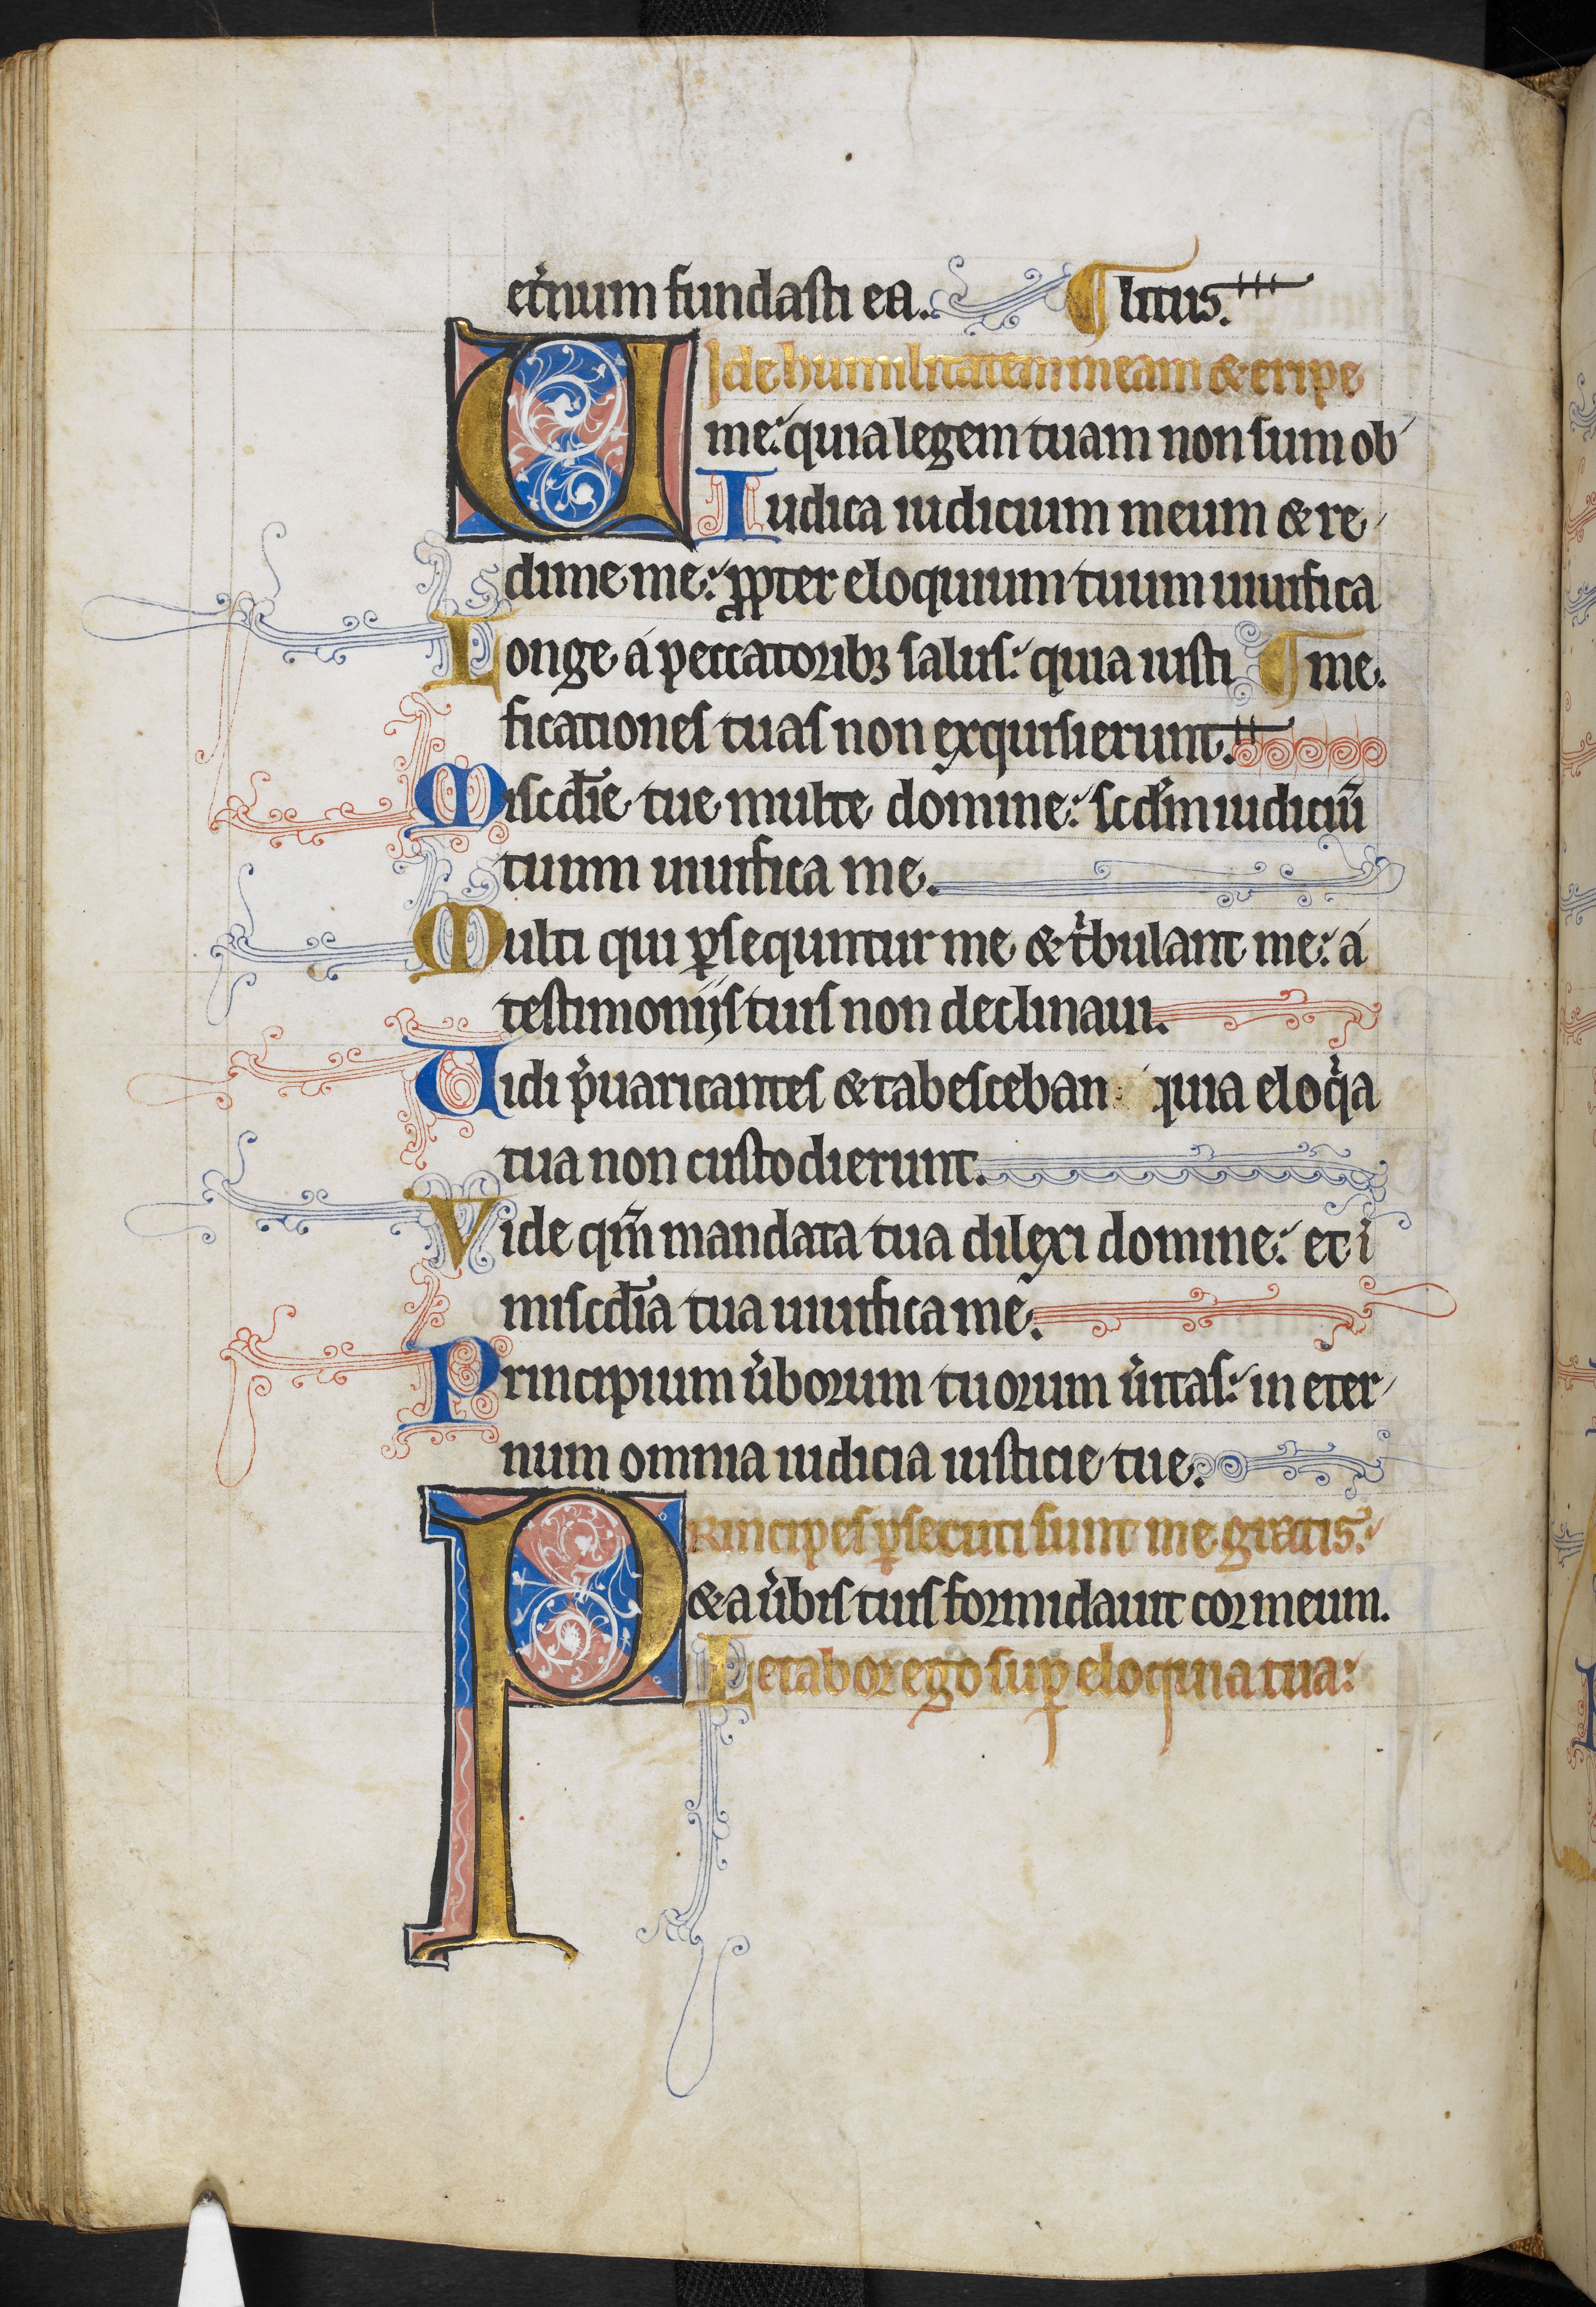 et̉num fundasti ea. ¶ litus.
UIde humilitatem meam & eripe
me: quia legem tuam non sum ob
Iudica iudicium meum & re
dime me: ꝓpter eloquium tuum uiuifica
Longe á peccatoribꝫ salus: quia iusti ¶ me.
ficationes tuas non exquisierunt.
Misc̄die tue multe domine: scd̄m iudiciū
tuum uiuifica me.
Multi qui ꝑsequntur me & tⁱbulant me: á
testimoniis tuis non declinaui.
Uidi p̉uaricantes & tabesceban: quia eloqⁱa
tua non custodierunt.
Vide qm̄ mandata tua dilexi domine: et ī
misc̄dia tua uiuifica me.
Principium ũborum tuorum ũitas: in eter
num omnia iudicia iusticie tue.
PRincipes ꝑsecuti sunt me gratis:
& a ũbis tuis formidauit cor meum.
Letabor ego suꝑ eloquia tua: